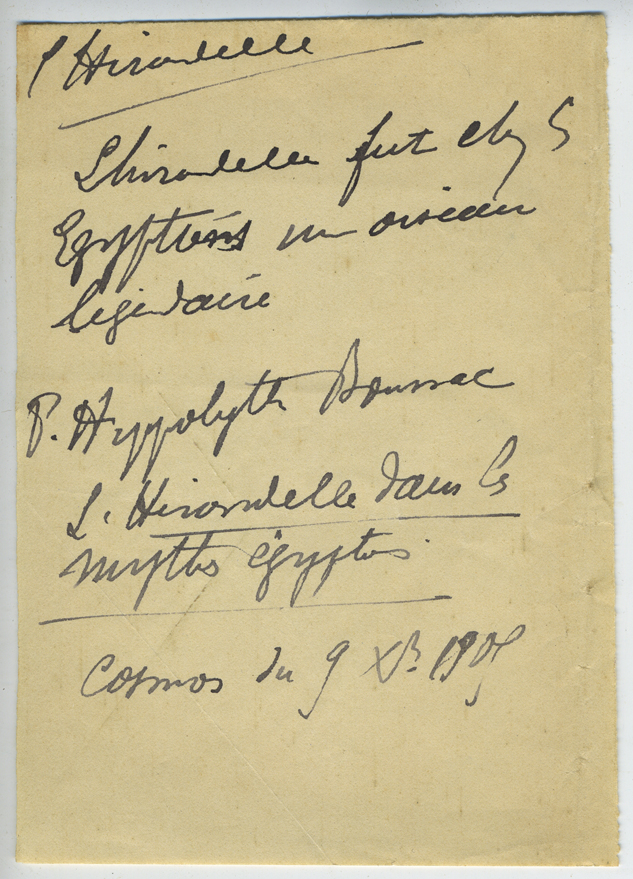 l'Hirondelle
L'hirondelle fut chez les
Egyptiens un oiseau
légendaire
P. Hyppolyte Boussac
L'Hirondelle dans les
mythes égyptiens
Cosmos du 9 Xbre 1905